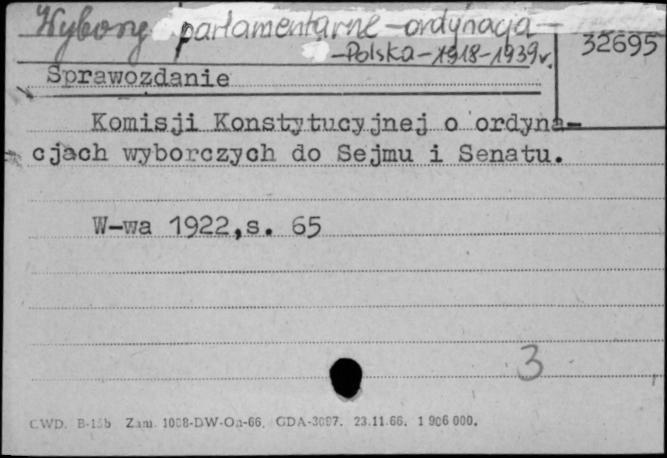 Wybory parlamentarne - ordynacja -
- Polska - 1918-1939r.
32695
Sprawozdanie
Komisji Konstytucyjnej o ordyna-
cjach wyborczych do Sejmu i Senatu.
W-wa 1922,s. 65
3
CWD. B-15b Zam. 1008-DW-On-66. GDA-3097. 23.11.66. 1 906 000.